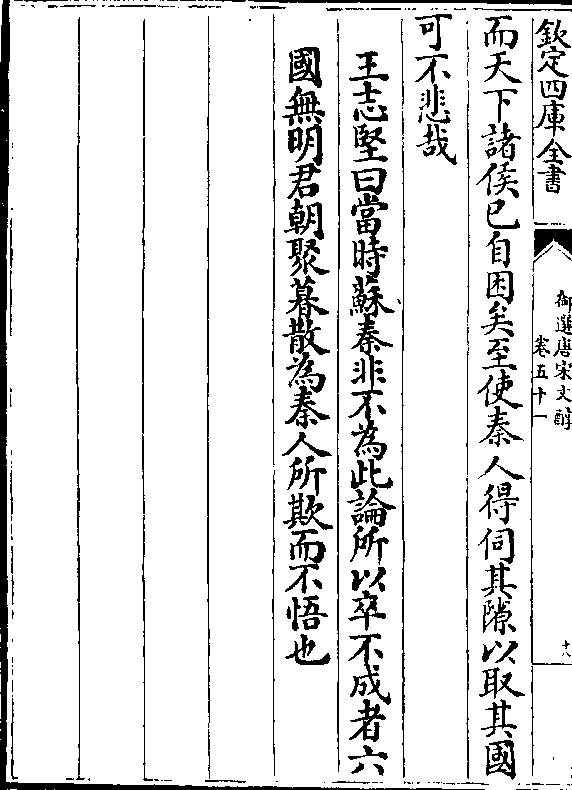 欽定四庫全書
御選唐宋文醇
卷五十一
十八
而天下諸侯已自困矣至使秦人得伺其隙以取其國
可不悲哉
王志堅曰當時蘇秦非不為此論所以卒不成者六
國無明君朝聚暮散為秦人所欺而不悟也